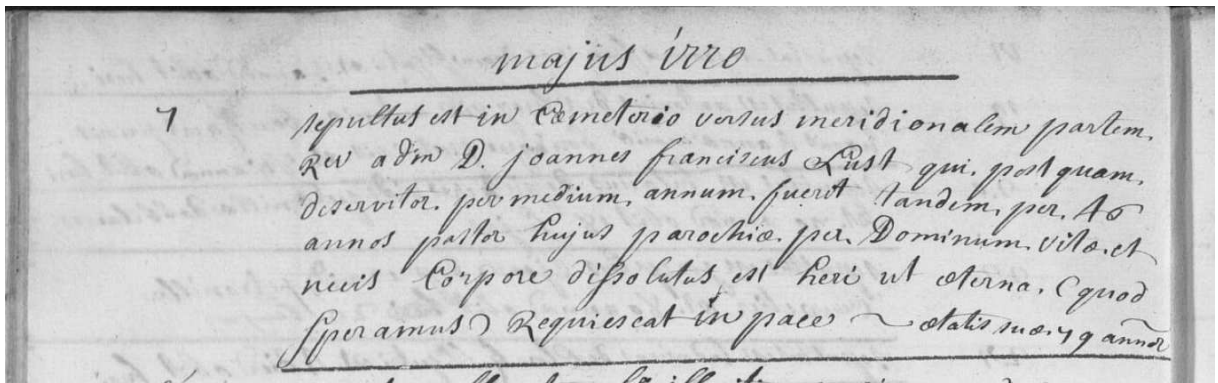 majus 1770
7
sepultus est in Cæmeterio versus meridionalem partem.
Rev adm D. joannes franciscus Lust qui. post quam.
deservitor. per medium. annum. fuerit tandem. per. 46
annos pastor hujus parochiæ. per. Dominum. vitæ. et
necis Corpore dissolutus est heri ut æterna. (quod
Speramus) Requiescat in pace ~ ætatis suæ. 79 annor